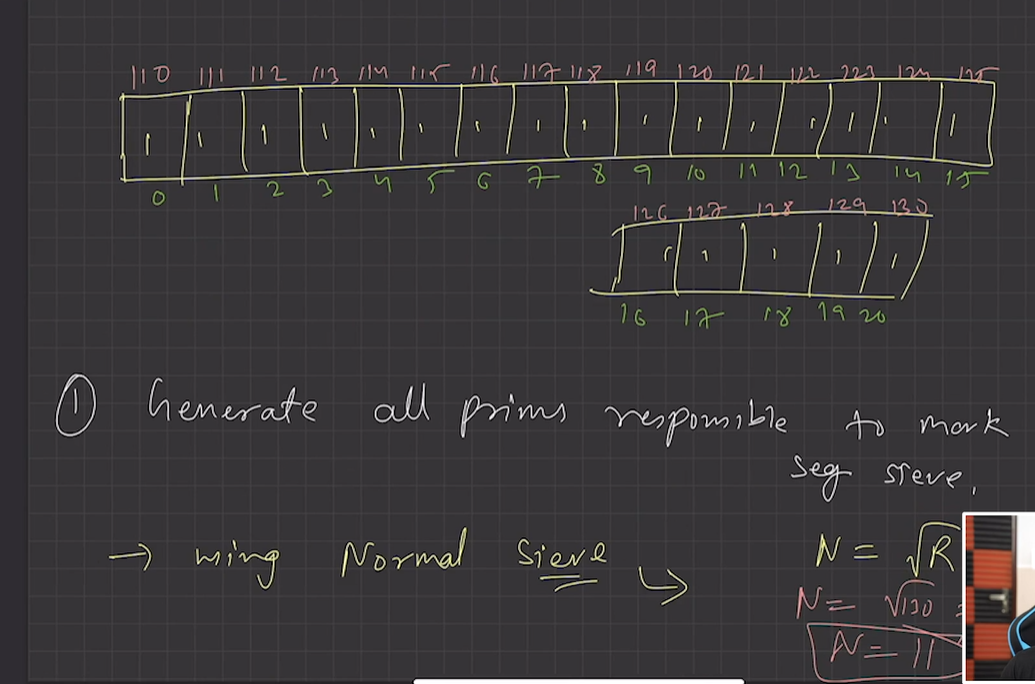 110 111 112 113 114 115 116 117 118 119 120 121 122 123 124 125
1 1 1 1 1 1 1 1 1 1 1 1 1 1 1 1
0 1 2 3 4 5 6 7 8 9 10 11 12 13 14 15
126 127 128 129 130
1 1 1 1 1
16 17 18 19 20
① Generate all prims responsible to mark
seg sieve.
→ using Normal Sieve
N = √R
N = √130 =
N = 11